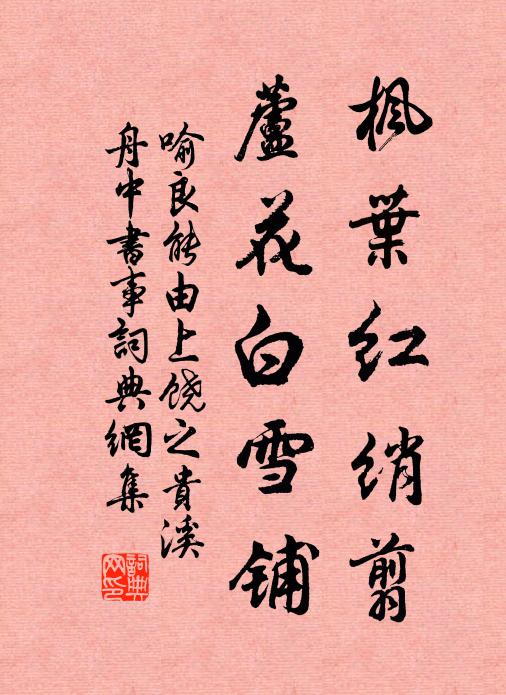 楓葉红绡翦
蘆花白雪铺
喻良能由上饶之貴溪
舟中書事詞典網集
詞典网印